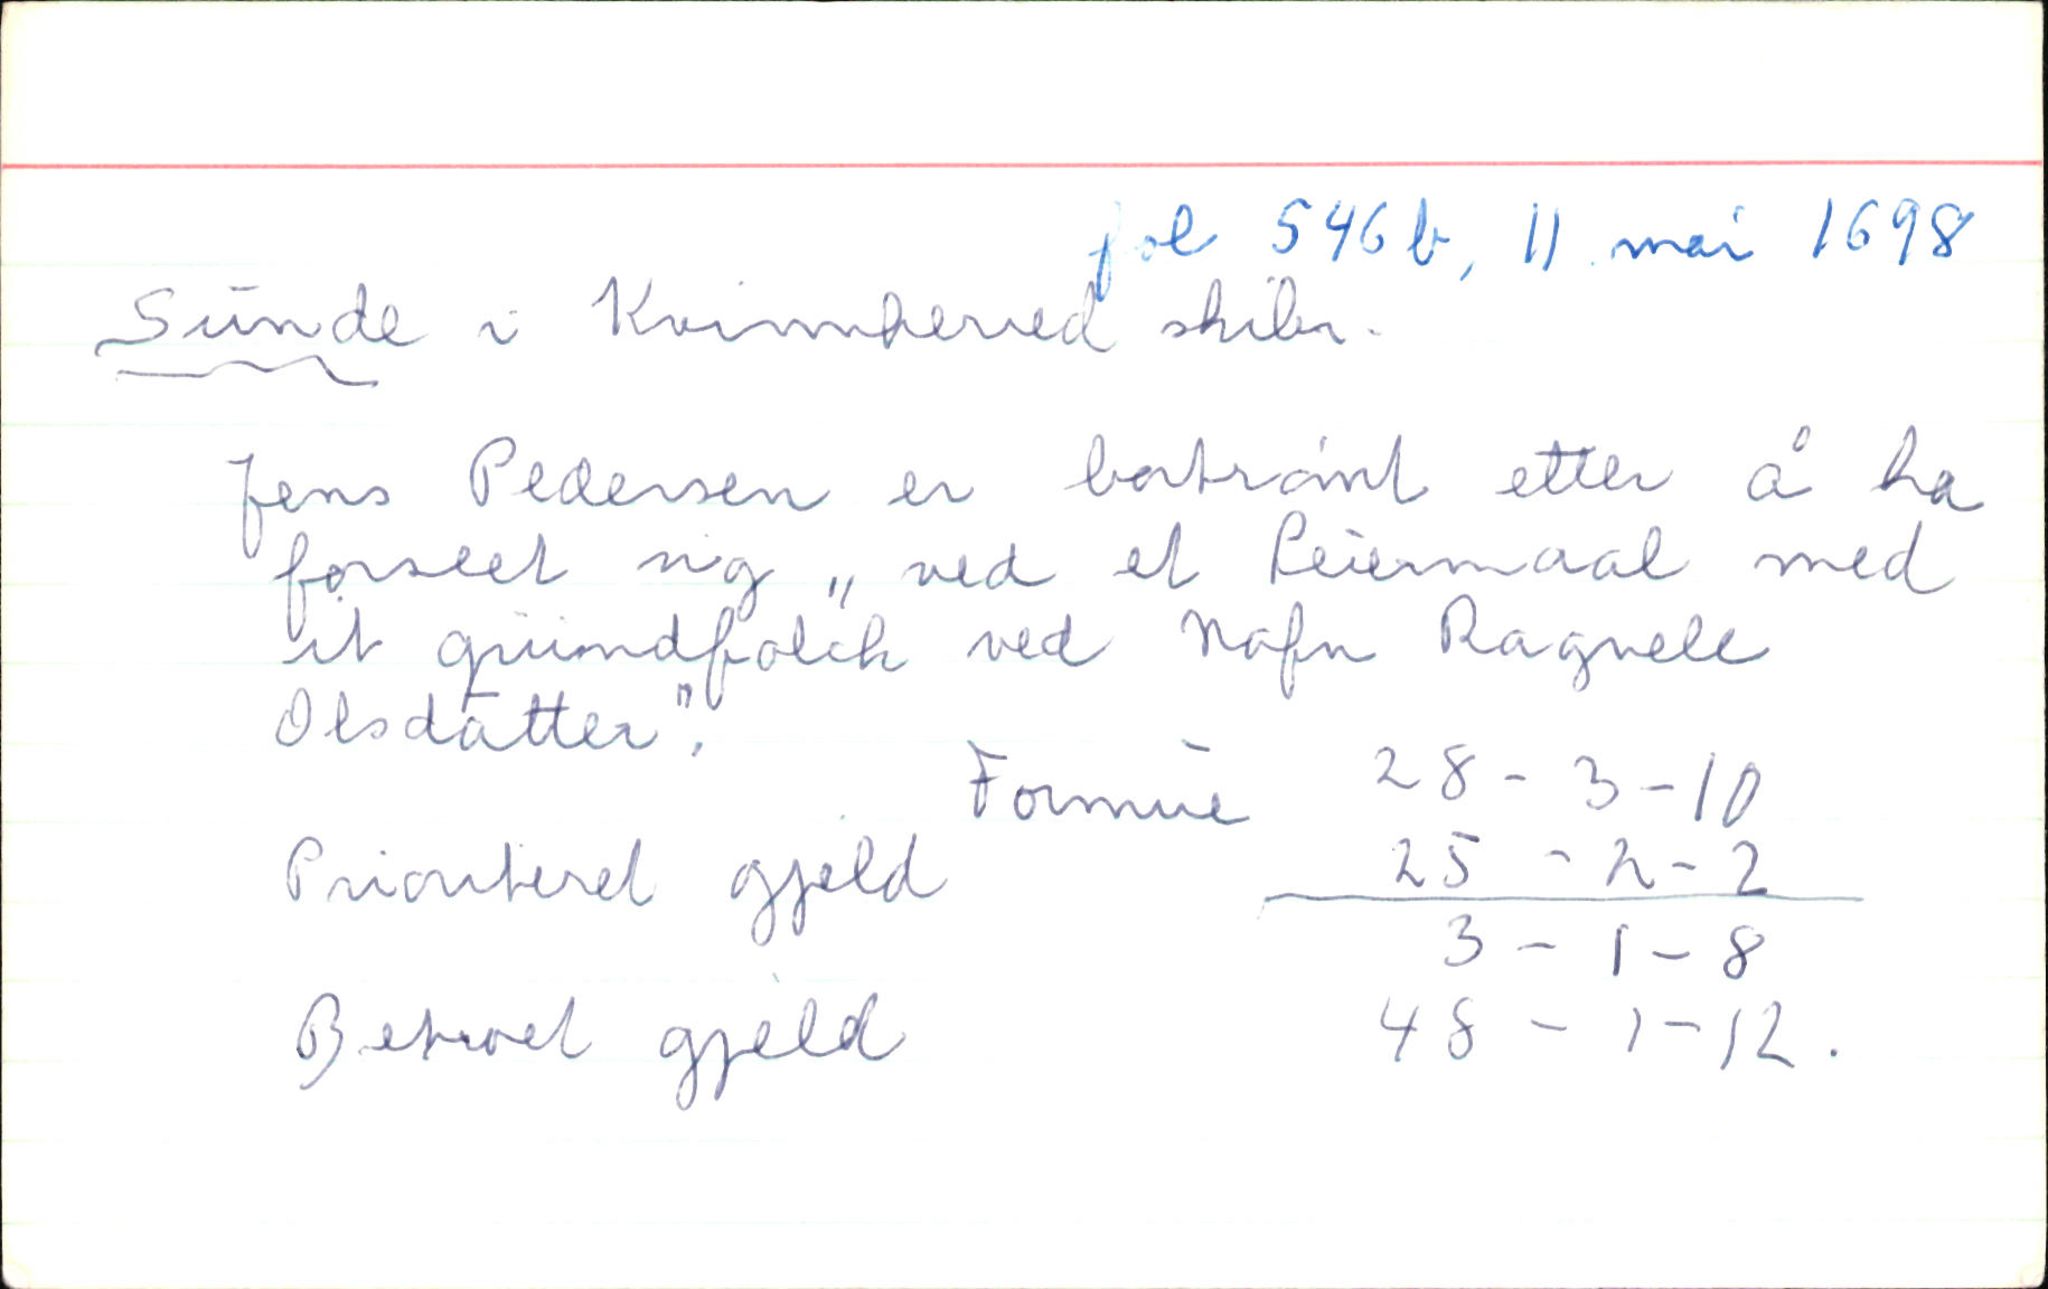 fol 546 b, 11 mai 1698
Sunde i Kvinnherred skibr.
Jens Pedersen er bortrømt etter å ha
forseet sig „ ved et Leiermaal med
it quindfolch ved Nafn Ragnele
Olsdatter".
Formue 28 - 3 - 10
Prioriteret gjeld 25 - 2 - 2
3 - 1 - 8
Betroet gjeld 48 - 1 - 12.